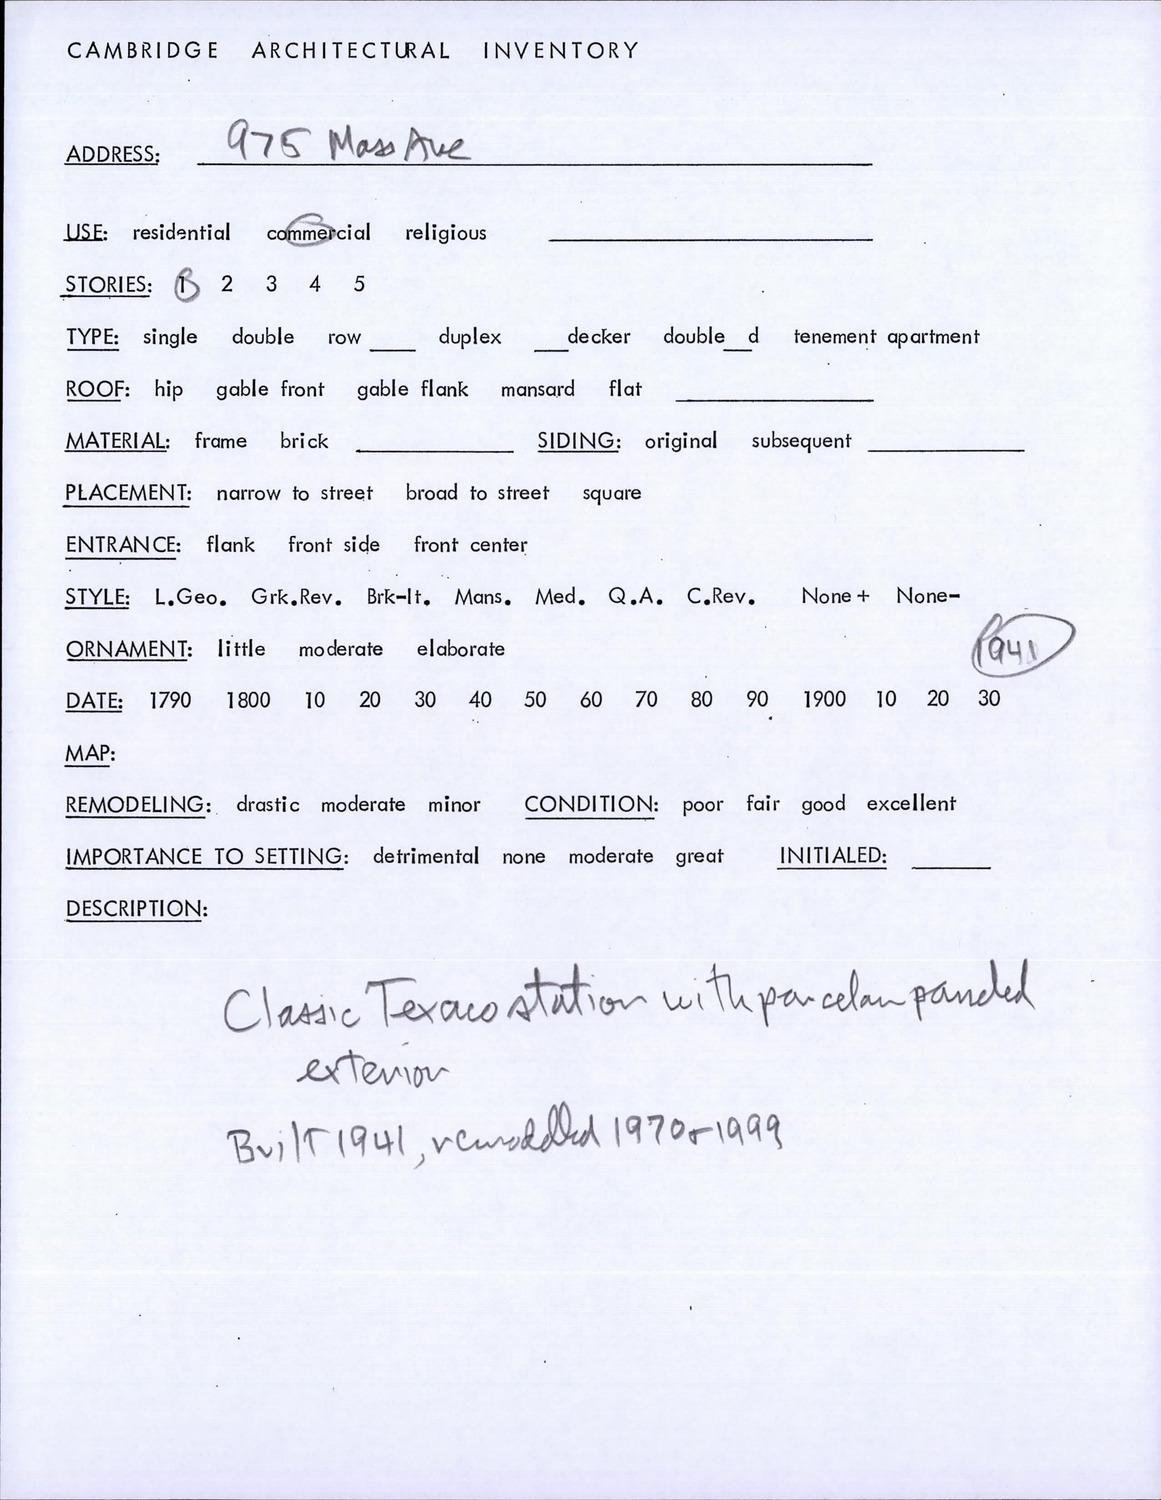 CAMBRIDGE ARCHITECTURAL INVENTORY
ADDRESS: 975 Mass Ave
USE: residential commercial religious
STORIES: 1 2 3 4 5
TYPE: single double row ___ duplex ___decker double__d tenement apartment
ROOF: hip gable front gable flank mansard flat
MATERIAL: frame brick SIDING: original subsequent
PLACEMENT: narrow to street broad to street square
ENTRANCE: flank front side front center
STYLE: L.Geo. Grk.Rev. Brk-It. Mans. Med. Q.A. C.Rev. None+ None-
ORNAMENT: little moderate elaborate 1941
DATE: 1790 1800 10 20 30 40 50 60 70 80 90 1900 10 20 30
MAP:
REMODELING: drastic moderate minor CONDITION: poor fair good excellent
IMPORTANCE TO SETTING: detrimental none moderate great INITIALED:
DESCRIPTION:
Classic Texaco station with porcelan paneled
exterior
Built 1941, remodelled 1970 + 1999